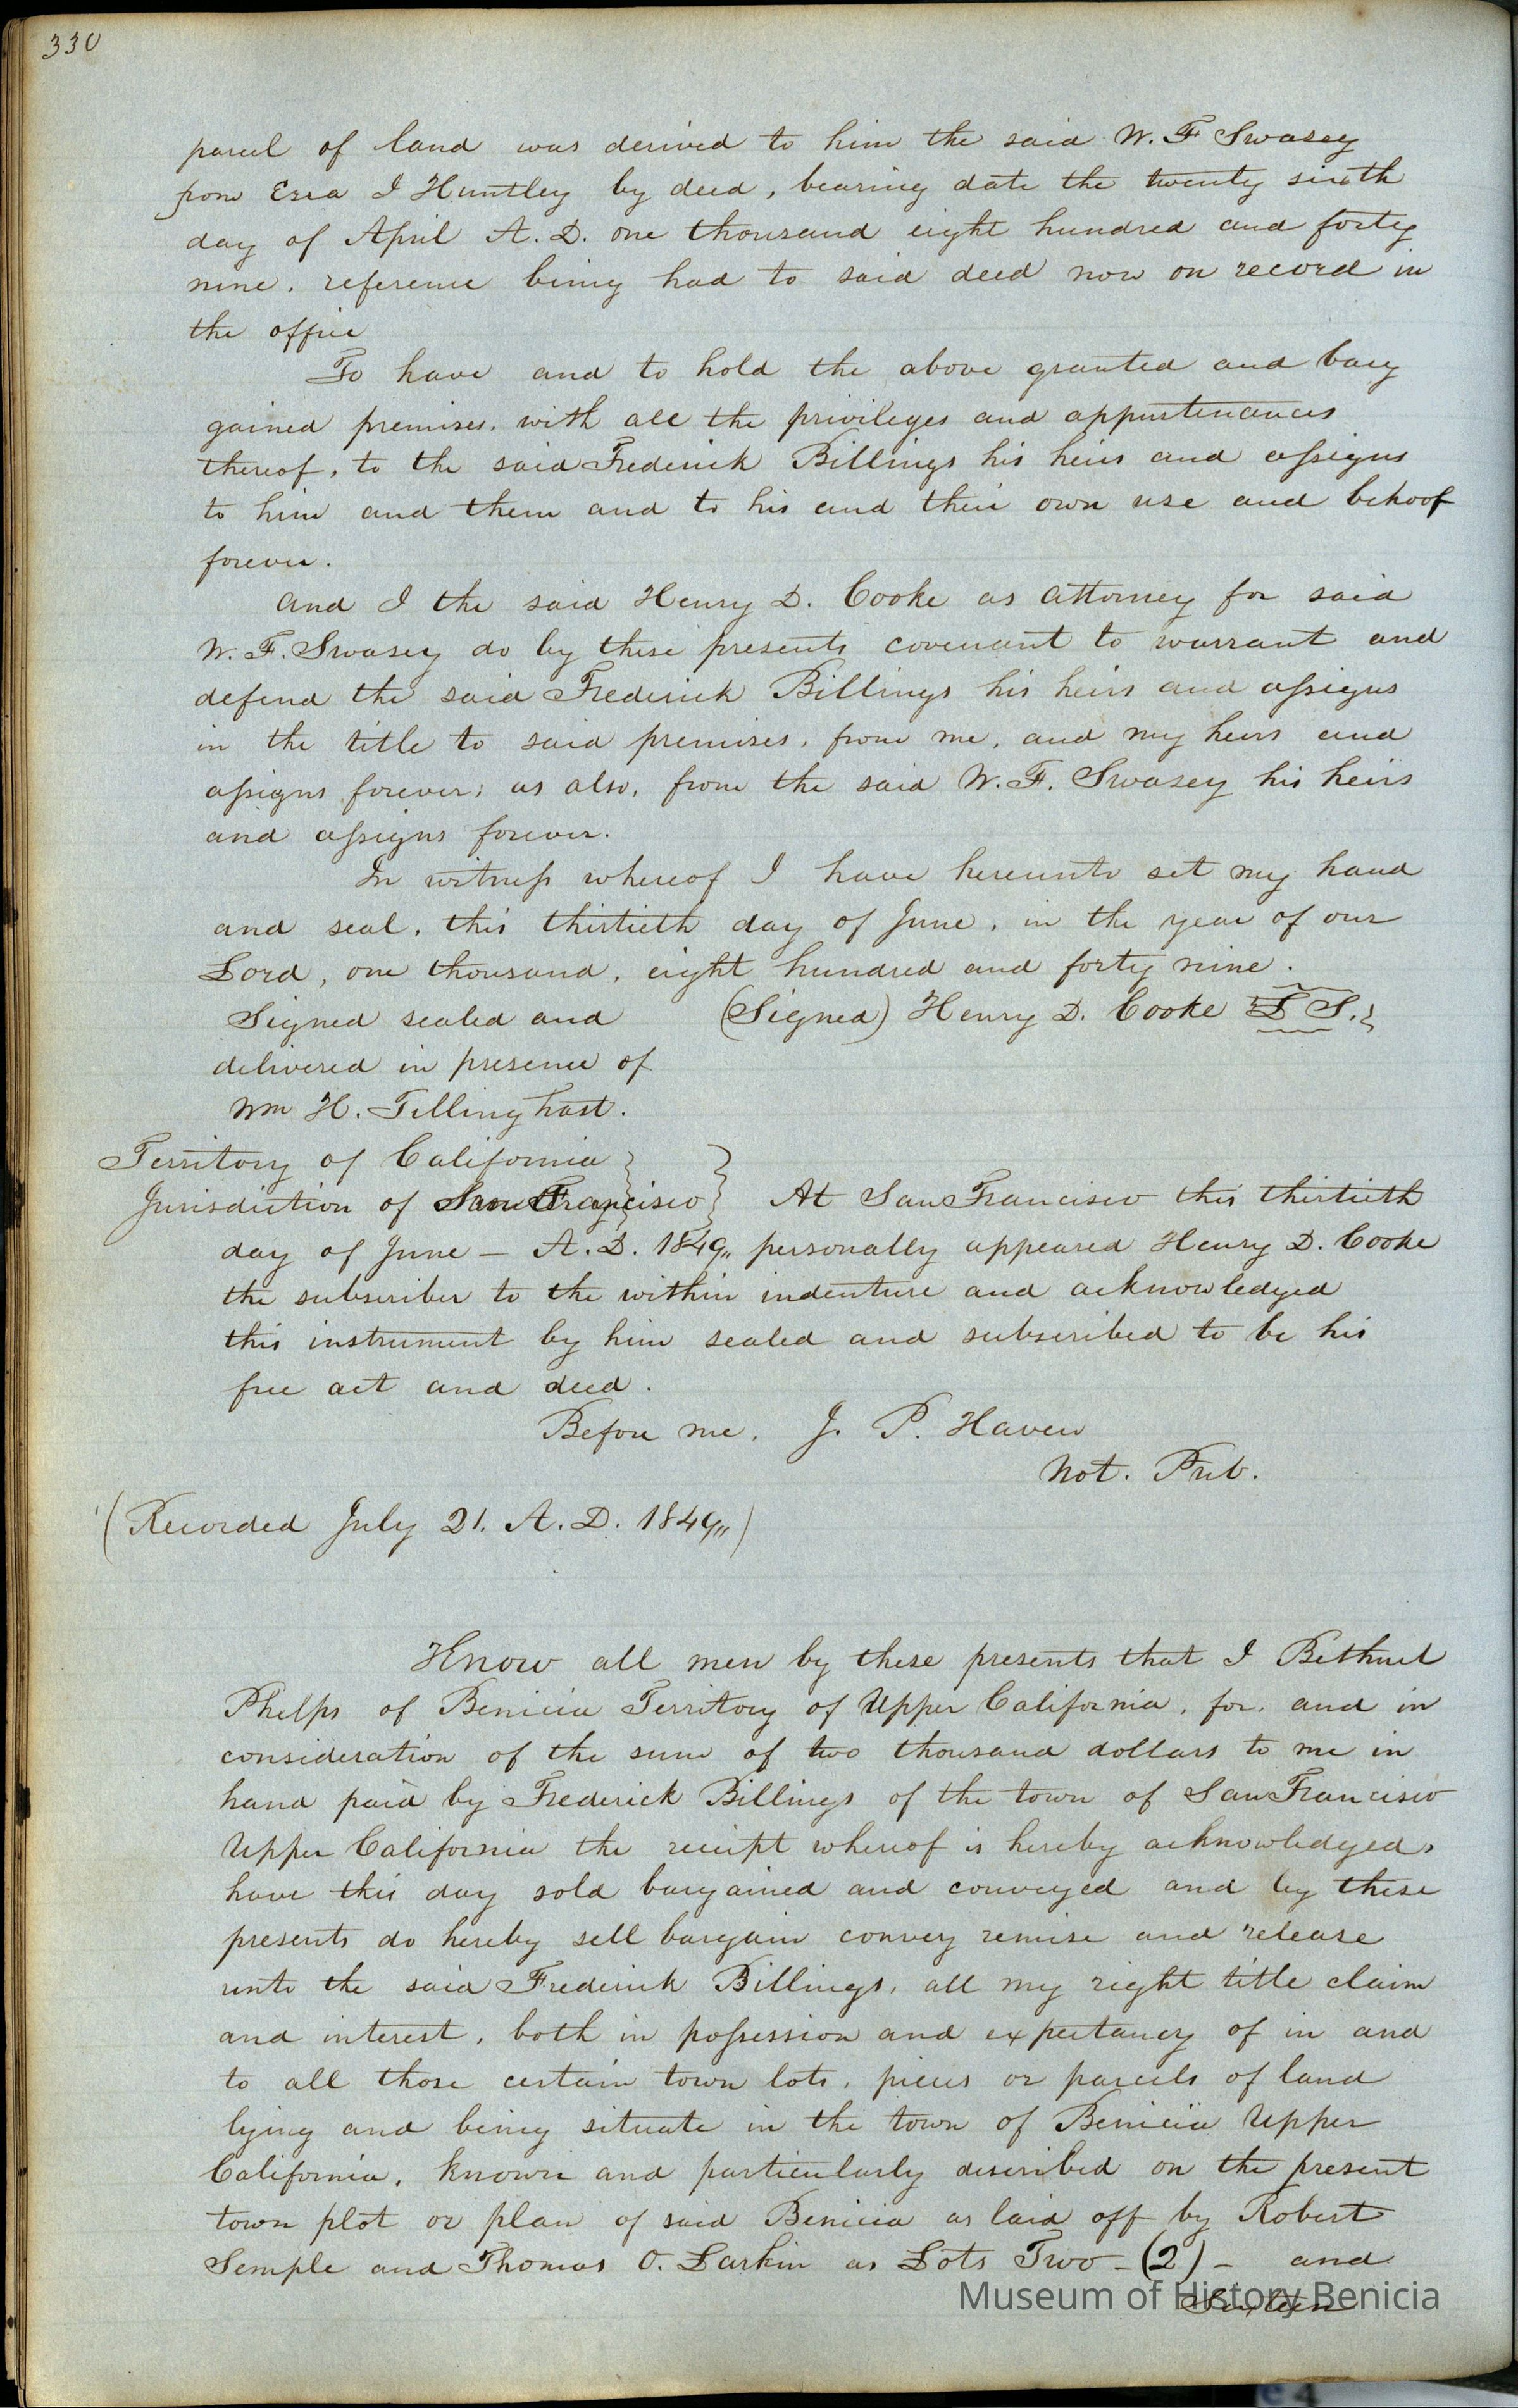 330
parcel of land was derived to him the said W. F Swasey
from Ezra I Huntley by deed, bearing date the twenty sixth
day of April A. D. one thousand eight hundred and forty
nine, reference being had to said deed now on record in
the office
To have and to hold the above granted and barg
gained premises, with all the privileges and appurtenances
thereof, to the said Frederick Billings his heirs and assigns
to him and them and to his and their own use and behoof
forever.
And I the said Henry D. Cooke as attorney for said
W. F. Swasey do by these presents covenant to warrant and
defend the said Frederick Billings his heirs and assigns
in the title to said premises, from me, and my heirs and
assigns forever; as also, from the said W. F. Swasey his heirs
and assigns forever.
In witness whereof I have hereunto set my hand
and seal, this thirtieth day of June, in the year of our
Lord, one thousand, eight hundred and forty nine.
Signed sealed and (Signed) Henry D. Cooke {L S.}
delivered in presence of
Wm H. Tillinghast.
Territory of California }
Jurisdiction of San Francisco } At San Francisco this thirtieth
day of June — A. D. 1849,, personally appeared Henry D. Cooke
the subscriber to the within indenture and acknowledged
this instrument by him sealed and subscribed to be his
free act and deed.
Before me, J. P. Haven
Not. Pub.
(Recorded July 21. A. D. 1849,,)
Know all men by these presents that I Bethuel
Phelps of Benicia Territory of Upper California, for, and in
consideration of the sum of two thousand dollars to me in
hand paid by Frederick Billings of the town of San Francisco
Upper California the receipt whereof is hereby acknowledged,
have this day sold bargained and conveyed and by these
presents do hereby sell bargain convey remise and release
unto the said Frederick Billings, all my right title claim
and interest, both in possession and expectancy of in and
to all those certain town lots, pieces or parcels of land
lying and being situate in the town of Benicia Upper
California, known and particularly described on the present
town plot or plan of said Benicia as laid off by Robert
Semple and Thomas O. Larkin as Lots Two - (2) - and
Sixteen
Museum of History Benicia